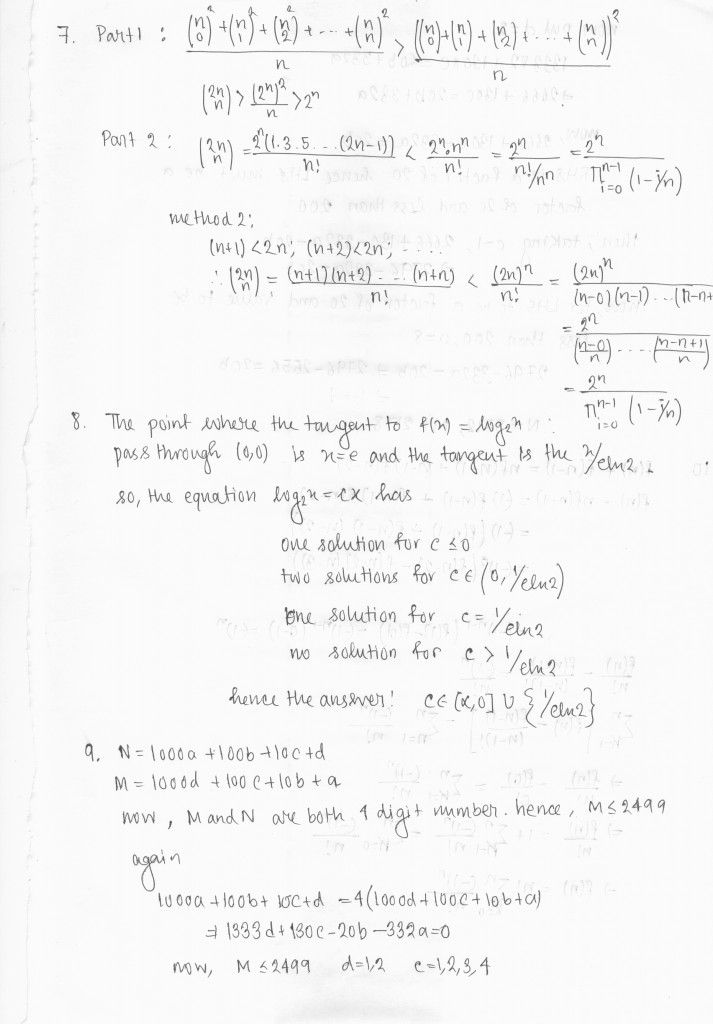 7. Part 1 : \frac{\binom{n}{0}^2 + \binom{n}{1}^2 + \binom{n}{2}^2 + \dots + \binom{n}{n}^2}{n} > \frac{\left(\binom{n}{0} + \binom{n}{1} + \binom{n}{2} + \dots + \binom{n}{n}\right)^2}{n}
\binom{2n}{n} > \frac{(2^n)^2}{n} > 2^n
Part 2 : \binom{2n}{n} = \frac{2^n(1.3.5....(2n-1))}{n!} < \frac{2^n \cdot n^n}{n!} = \frac{2^n}{n!/n^n} = \frac{2^n}{\prod_{i=0}^{n-1}(1-i/n)}
method 2:
(n+1) < 2n, (n+2) < 2n, ....
∴ \binom{2n}{n} = \frac{(n+1)(n+2)....(n+n)}{n!} < \frac{(2n)^n}{n!} = \frac{(2n)^n}{(n-0)(n-1)...(n-n+}
= \frac{2^n}{(\frac{n-0}{n}) .... (\frac{n-n+1}{n})}
= \frac{2^n}{\prod_{i=0}^{n-1}(1-i/n)}
8. The point where the tangent to f(x) = log_2 x
pass through (0,0) is x=e and the tangent is the x/eln2.
so, the equation log_2 x = cx has
one solution for c ≤ 0
two solutions for c ∈ (0, 1/eln2)
one solution for c = 1/eln2
no solution for c > 1/eln2
hence the answer! c ∈ [α,0] ∪ {1/eln2}
9. N = 1000a + 100b + 10c + d
M = 1000d + 100c + 10b + a
now, M and N are both 4 digit number. hence, M ≤ 2499
again
1000a + 100b + 10c + d = 4(1000d + 100c + 10b + a)
⇒ 1333d + 130c - 20b - 332a = 0
now, M ≤ 2499 d=1,2 c=1,2,3,4